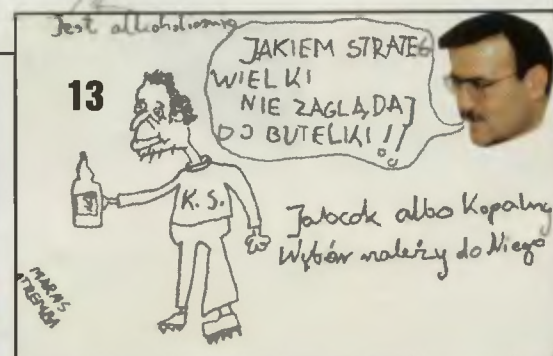 Jest alkoholizmie
JAKIEM STRATEG
WIELKI
NIE ZAGLĄDAJ
DO BUTELKI!!
13
K. S.
albo Kopalny
Wybór należy do Niego
MARAS
ATREMBA